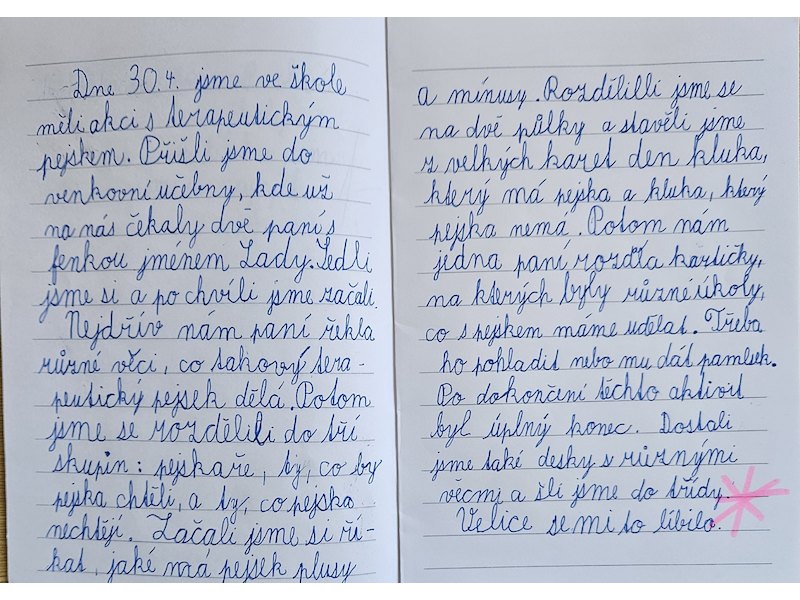 Dne 30.4. jsme ve škole
měli akci s terapeutickým
pejskem. Přišli jsme do
venkovní učebny, kde už
na nás čekaly dvě paní s
fenkou jménem Lady. Sedli
jsme si a po chvíli jsme začali.
Nejdřív nám paní řekla
různé věci, co takový tera-
peutický pejsek dělá. Potom
jsme se rozdělili do tří
skupin: pejskaře, ty, co by
pejska chtěli, a ty, co pejska
nechtějí. Začali jsme si ří-
kat, jaké má pejsek plusy
a mínusy. Rozdělilli jsme se
na dvě půlky a stavěli jsme
z velkých karet den kluka,
který má pejska a kluka, který
pejska nemá. Potom nám
jedna paní rozdala kartičky,
na kterých byly různé úkoly,
co s pejskem máme udělat. Třeba
ho pohladit nebo mu dát pamlsek.
Po dokončení těchto aktivit
byl úplný konec. Dostali
jsme také desky s různými
věcmi a šli jsme do třídy.
Velice se mi to líbilo.